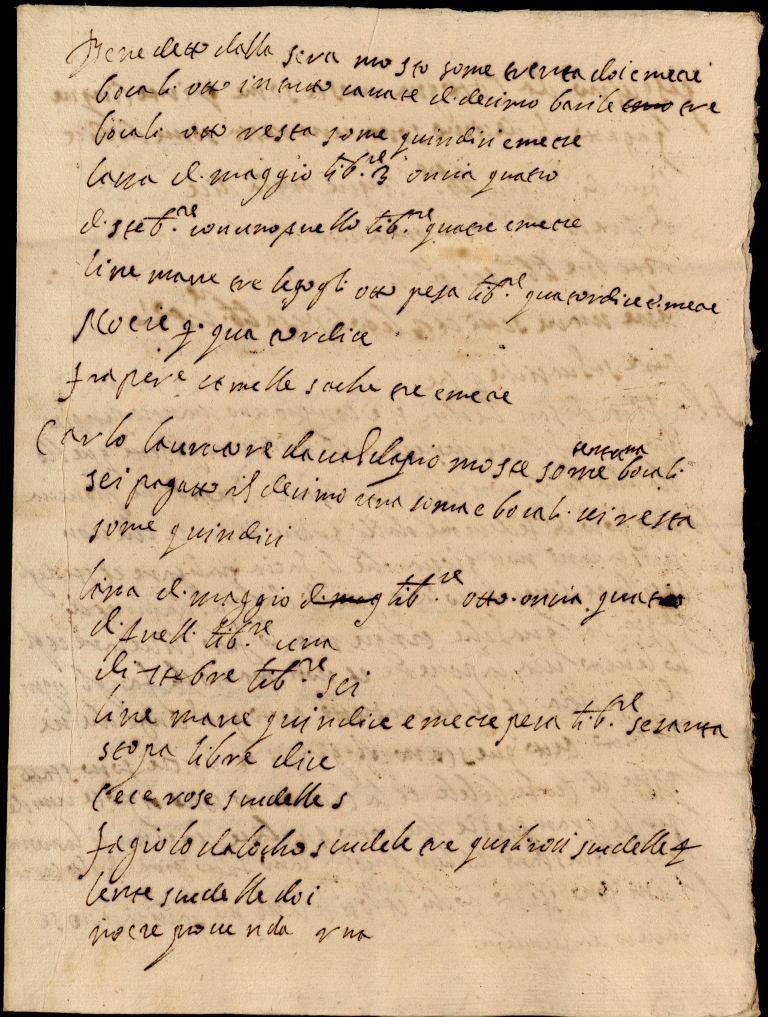 Benedetto dalla sera mosto some trenta doi e mezi
bocali otto in tutto cavate el decimo barile tre
bocali otto resta some quindici e mezze
lana d. maggio lib.re 3 oncia quatro
d. steb.re con uno lib.re quatre e mezze
line mane tre legogli otto pesa lib.re quatordice e meze
Noce q. quatordice
frapere camelle sache tre e meze
Carlo lauratore da moste some bocali
sei pagatto il decimo una soma e bocali sei resta
some quindici
lana d. maggio d. mag lib.re otto oncia quatro
d. lib.re una
di stebre lib.re sei
line mane quindice e mezze pesa lib.re sesanta
stopa libre dice
Cece rose scudelle s
fagiolo dalocho scudele tre scudelle 4
lente scudelle doi
noce provenda una